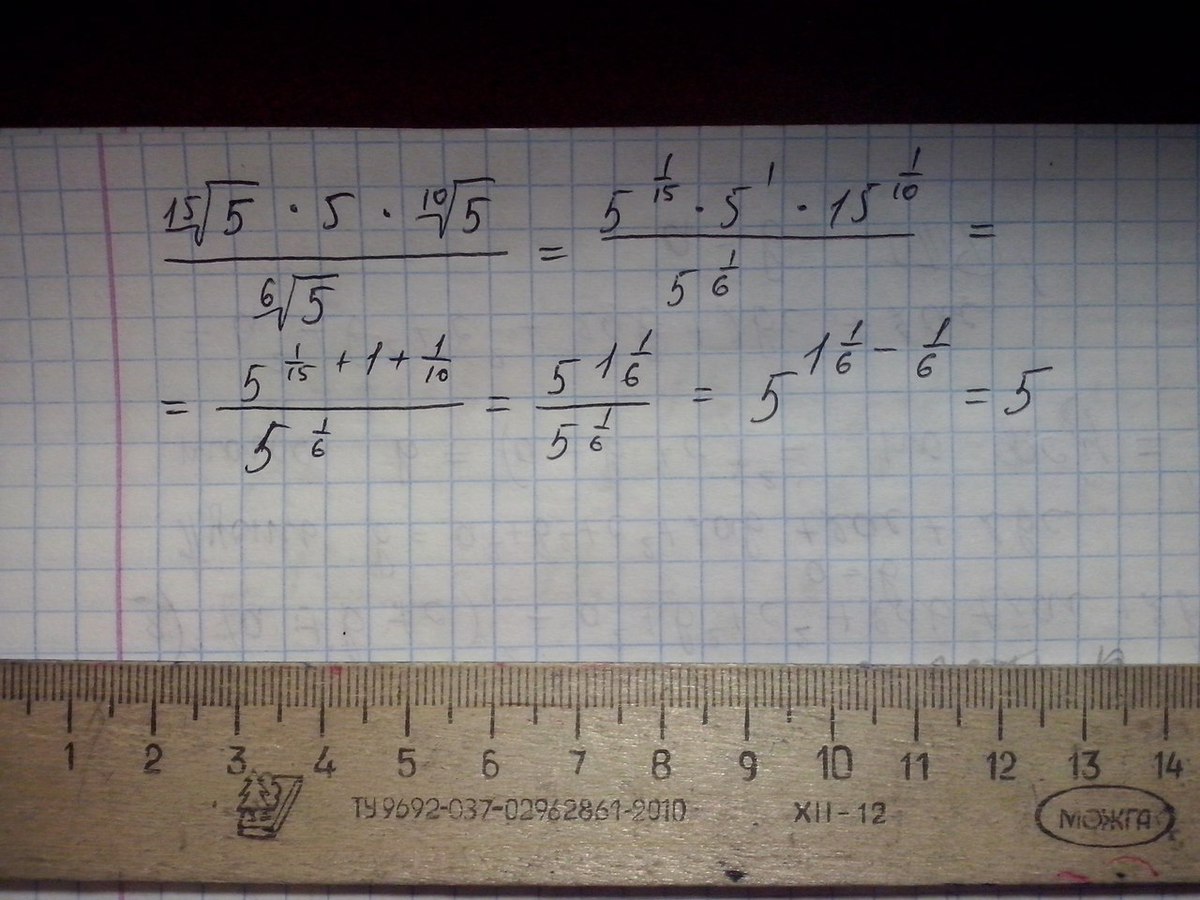 \frac{\sqrt[15]{5} \cdot 5 \cdot \sqrt[10]{5}}{\sqrt[6]{5}} = \frac{5^{\frac{1}{15}} \cdot 5^{1} \cdot 15^{\frac{1}{10}}}{5^{\frac{1}{6}}} =
= \frac{5^{\frac{1}{15}+1+\frac{1}{10}}}{5^{\frac{1}{6}}} = \frac{5^{1\frac{1}{6}}}{5^{\frac{1}{6}}} = 5^{1\frac{1}{6}-\frac{1}{6}} = 5
1 2 3 4 5 6 7 8 9 10 11 12 13 14
ТУ9692-037-02962861-2010 XII-12 МОЖГА